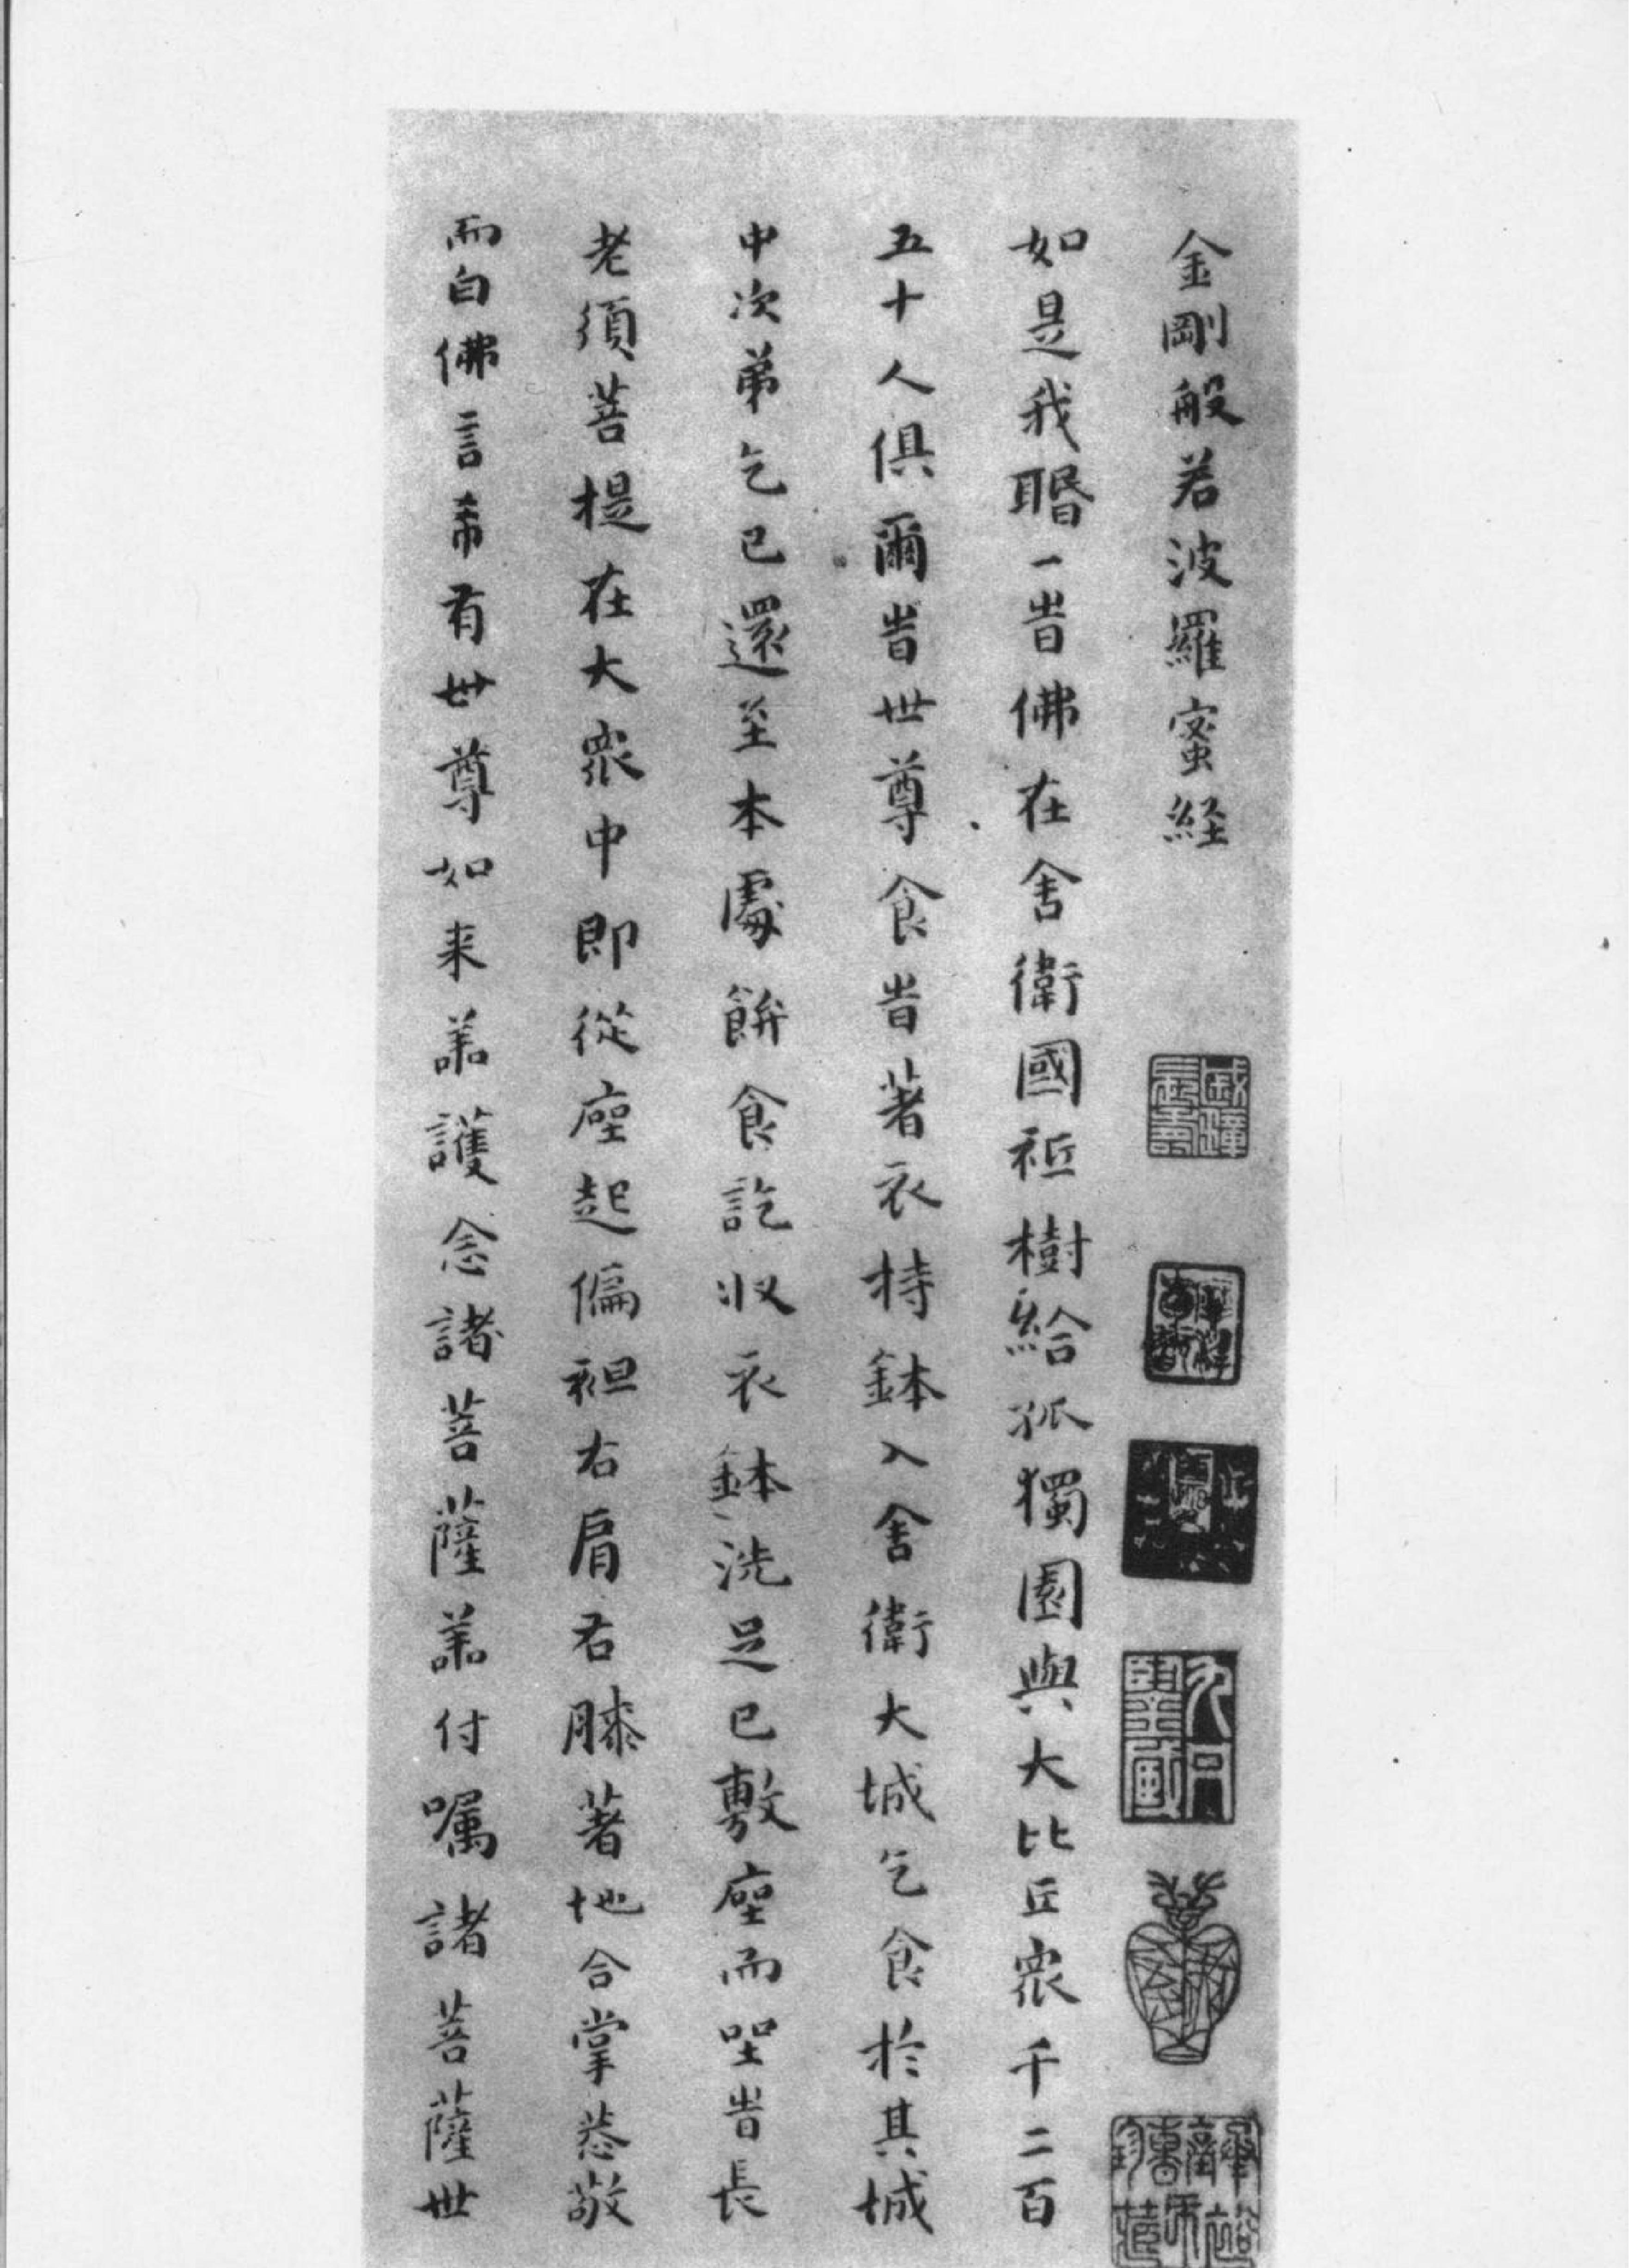 金剛般若波羅蜜経
如是我聞一旹佛在舍衛國祇樹給孤獨園與大比丘衆千二百
五十人俱爾旹世尊食旹著衣持鉢入舍衛大城乞食於其城
中次第乞已還至本處飯食訖収衣鉢洗足已敷座而坐旹長
老須菩提在大衆中即從座起偏袒右肩右膝著地合掌恭敬
而白佛言希有世尊如来善護念諸菩薩善付嘱諸菩薩世